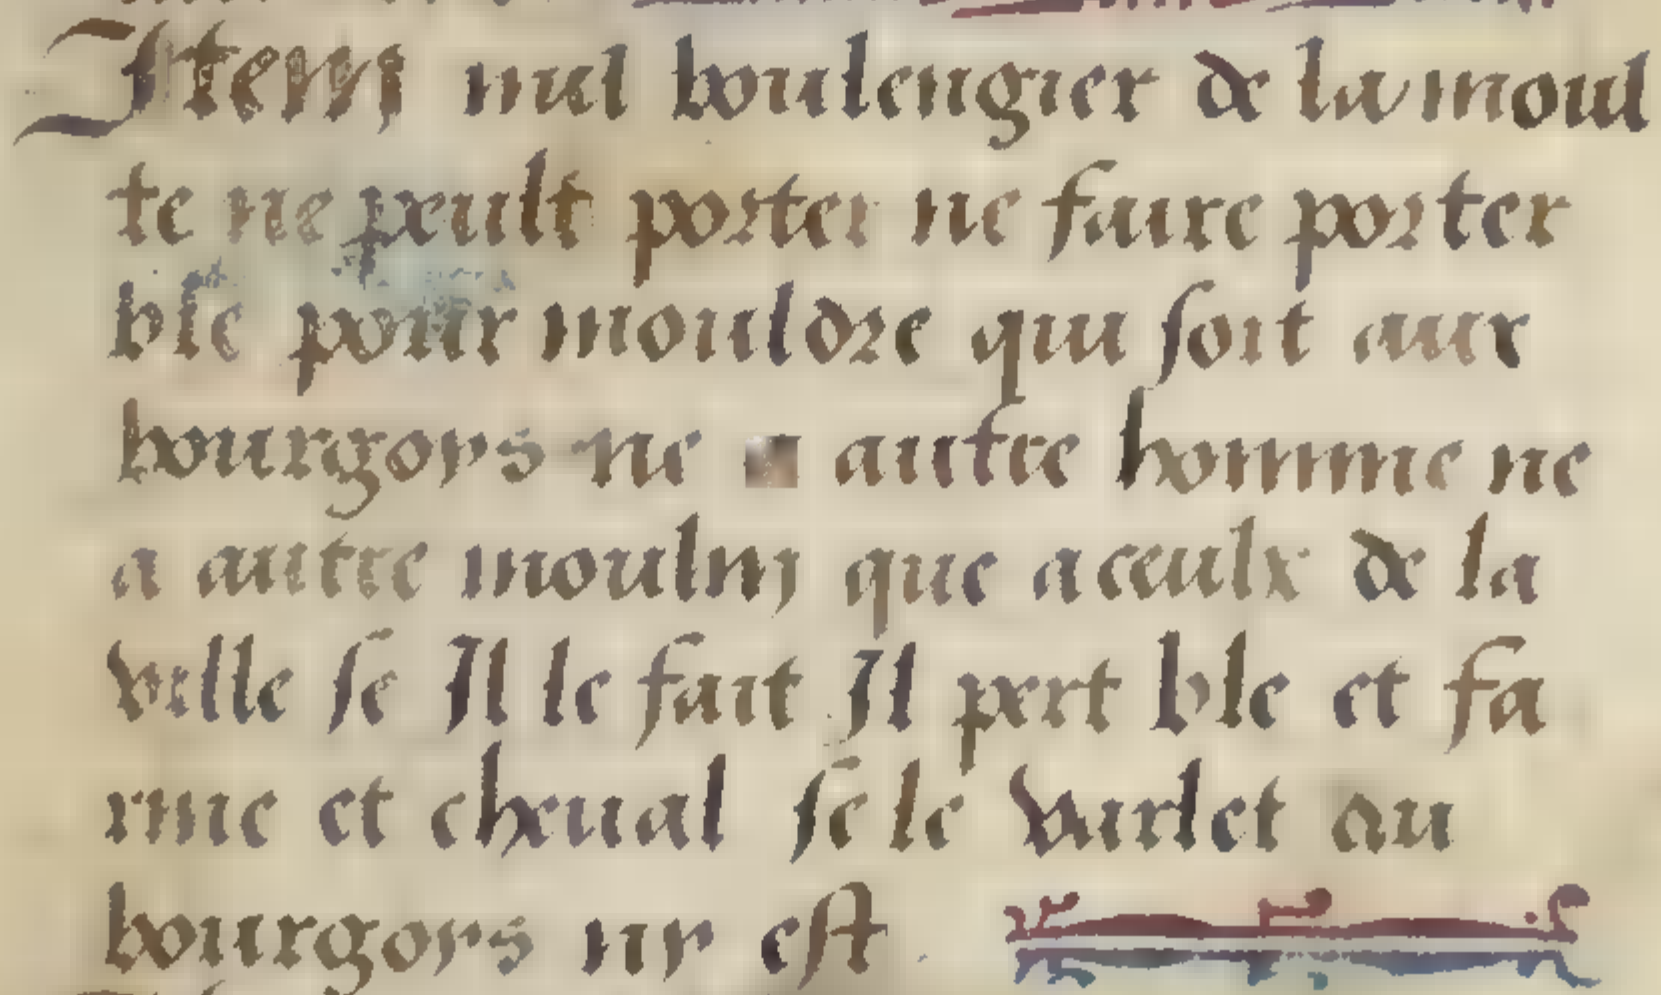 Item nul boulengier de la moul
te ne peult porter ne faire porter
ble pour mouldre qui soit aux
bourgoys ne a autre homme ne
a autre moulin que a ceulx de la
ville se Il le fait Il pert ble et fa
rine et cheual se le varlet du
bourgoys ny est